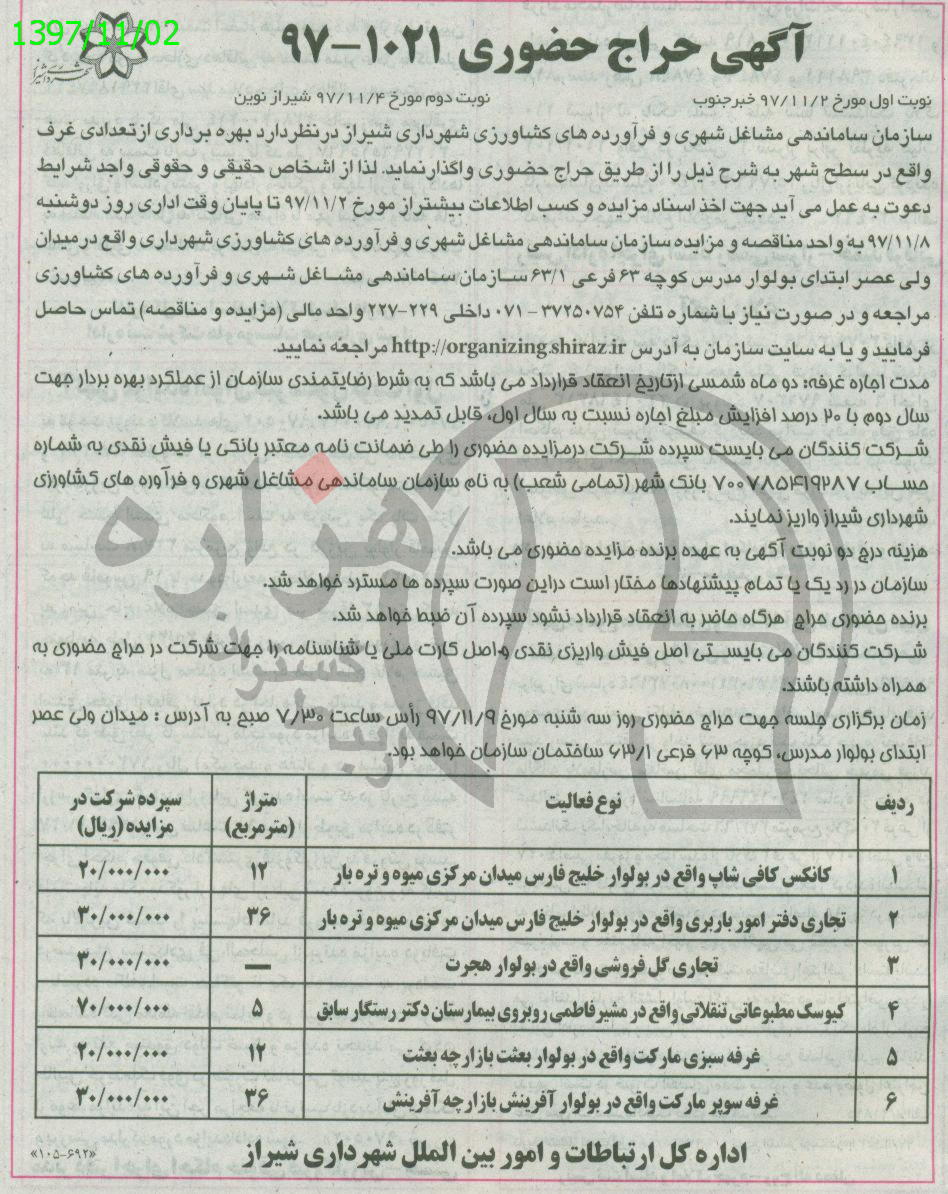 1397/11/02
آگهی حراج حضوری ۱۰۲۱-۹۷
شهرداری شیراز
نوبت اول مورخ ۹۷/۱۱/۲ خبرجنوب نوبت دوم مورخ ۹۷/۱۱/۴ شیراز نوین
سازمان ساماندهی مشاغل شهری و فرآورده های کشاورزی شهرداری شیراز درنظردارد بهره برداری ازتعدادی غرف
واقع در سطح شهر به شرح ذیل را از طریق حراج حضوری واگذارنماید. لذا از اشخاص حقیقی و حقوقی واجد شرایط
دعوت به عمل می آید جهت اخذ اسناد مزایده و کسب اطلاعات بیشتراز مورخ ۹۷/۱۱/۲ تا پایان وقت اداری روز دوشنبه
۹۷/۱۱/۸ به واحد مناقصه و مزایده سازمان ساماندهی مشاغل شهری و فرآورده های کشاورزی شهرداری واقع درمیدان
ولی عصر ابتدای بولوار مدرس کوچه ۶۳ فرعی ۶۳/۱ سازمان ساماندهی مشاغل شهری و فرآورده های کشاورزی
مراجعه و در صورت نیاز با شماره تلفن ۳۷۲۵۰۷۵۴ - ۰۷۱ داخلی ۲۲۹-۲۲۷ واحد مالی (مزایده و مناقصه) تماس حاصل
فرمایید و یا به سایت سازمان به آدرس http://organizing.shiraz.ir مراجعه نمایید.
مدت اجاره غرفه: دو ماه شمسی ازتاریخ انعقاد قرارداد می باشد که به شرط رضایتمندی سازمان از عملکرد بهره بردار جهت
سال دوم با ۲۰ درصد افزایش مبلغ اجاره نسبت به سال اول، قابل تمدید می باشد.
شرکت کنندگان می بایست سپرده شرکت درمزایده حضوری را طی ضمانت نامه معتبر بانکی یا فیش نقدی به شماره
حساب ۷۰۰۷۸۵۴۱۹۲۸۷ بانک شهر (تمامی شعب) به نام سازمان ساماندهی مشاغل شهری و فرآوره های کشاورزی
شهرداری شیراز واریز نمایند.
هزینه درج دو نوبت آگهی به عهده برنده مزایده حضوری می باشد.
سازمان در رد یک یا تمام پیشنهادها مختار است دراین صورت سپرده ها مسترد خواهد شد.
برنده حضوری حراج هرگاه حاضر به انعقاد قرارداد نشود سپرده آن ضبط خواهد شد.
شرکت کنندگان می بایستی اصل فیش واریزی نقدی و اصل کارت ملی یا شناسنامه را جهت شرکت در حراج حضوری به
همراه داشته باشند.
زمان برگزاری جلسه جهت حراج حضوری روز سه شنبه مورخ ۹۷/۱۱/۹ رأس ساعت ۷/۳۰ صبح به آدرس : میدان ولی عصر
ابتدای بولوار مدرس، کوچه ۶۳ فرعی ۶۳/۱ ساختمان سازمان خواهد بود.
ردیف نوع فعالیت متراژ (مترمربع) سپرده شرکت در مزایده (ریال)
۱ کانکس کافی شاپ واقع در بولوار خلیج فارس میدان مرکزی میوه و تره بار ۱۲ ۲۰/۰۰۰/۰۰۰
۲ تجاری دفتر امور باربری واقع در بولوار خلیج فارس میدان مرکزی میوه و تره بار ۳۶ ۳۰/۰۰۰/۰۰۰
۳ تجاری گل فروشی واقع در بولوار هجرت — ۳۰/۰۰۰/۰۰۰
۴ کیوسک مطبوعاتی تنقلاتی واقع در مشیرفاطمی روبروی بیمارستان دکتر رستگار سابق ۵ ۷۰/۰۰۰/۰۰۰
۵ غرفه سبزی مارکت واقع در بولوار بعثت بازارچه بعثت ۱۲ ۲۰/۰۰۰/۰۰۰
۶ غرفه سوپر مارکت واقع در بولوار آفرینش بازارچه آفرینش ۳۶ ۳۰/۰۰۰/۰۰۰
اداره کل ارتباطات و امور بین الملل شهرداری شیراز
«۱۰۵-۶۹۲»
هزاره